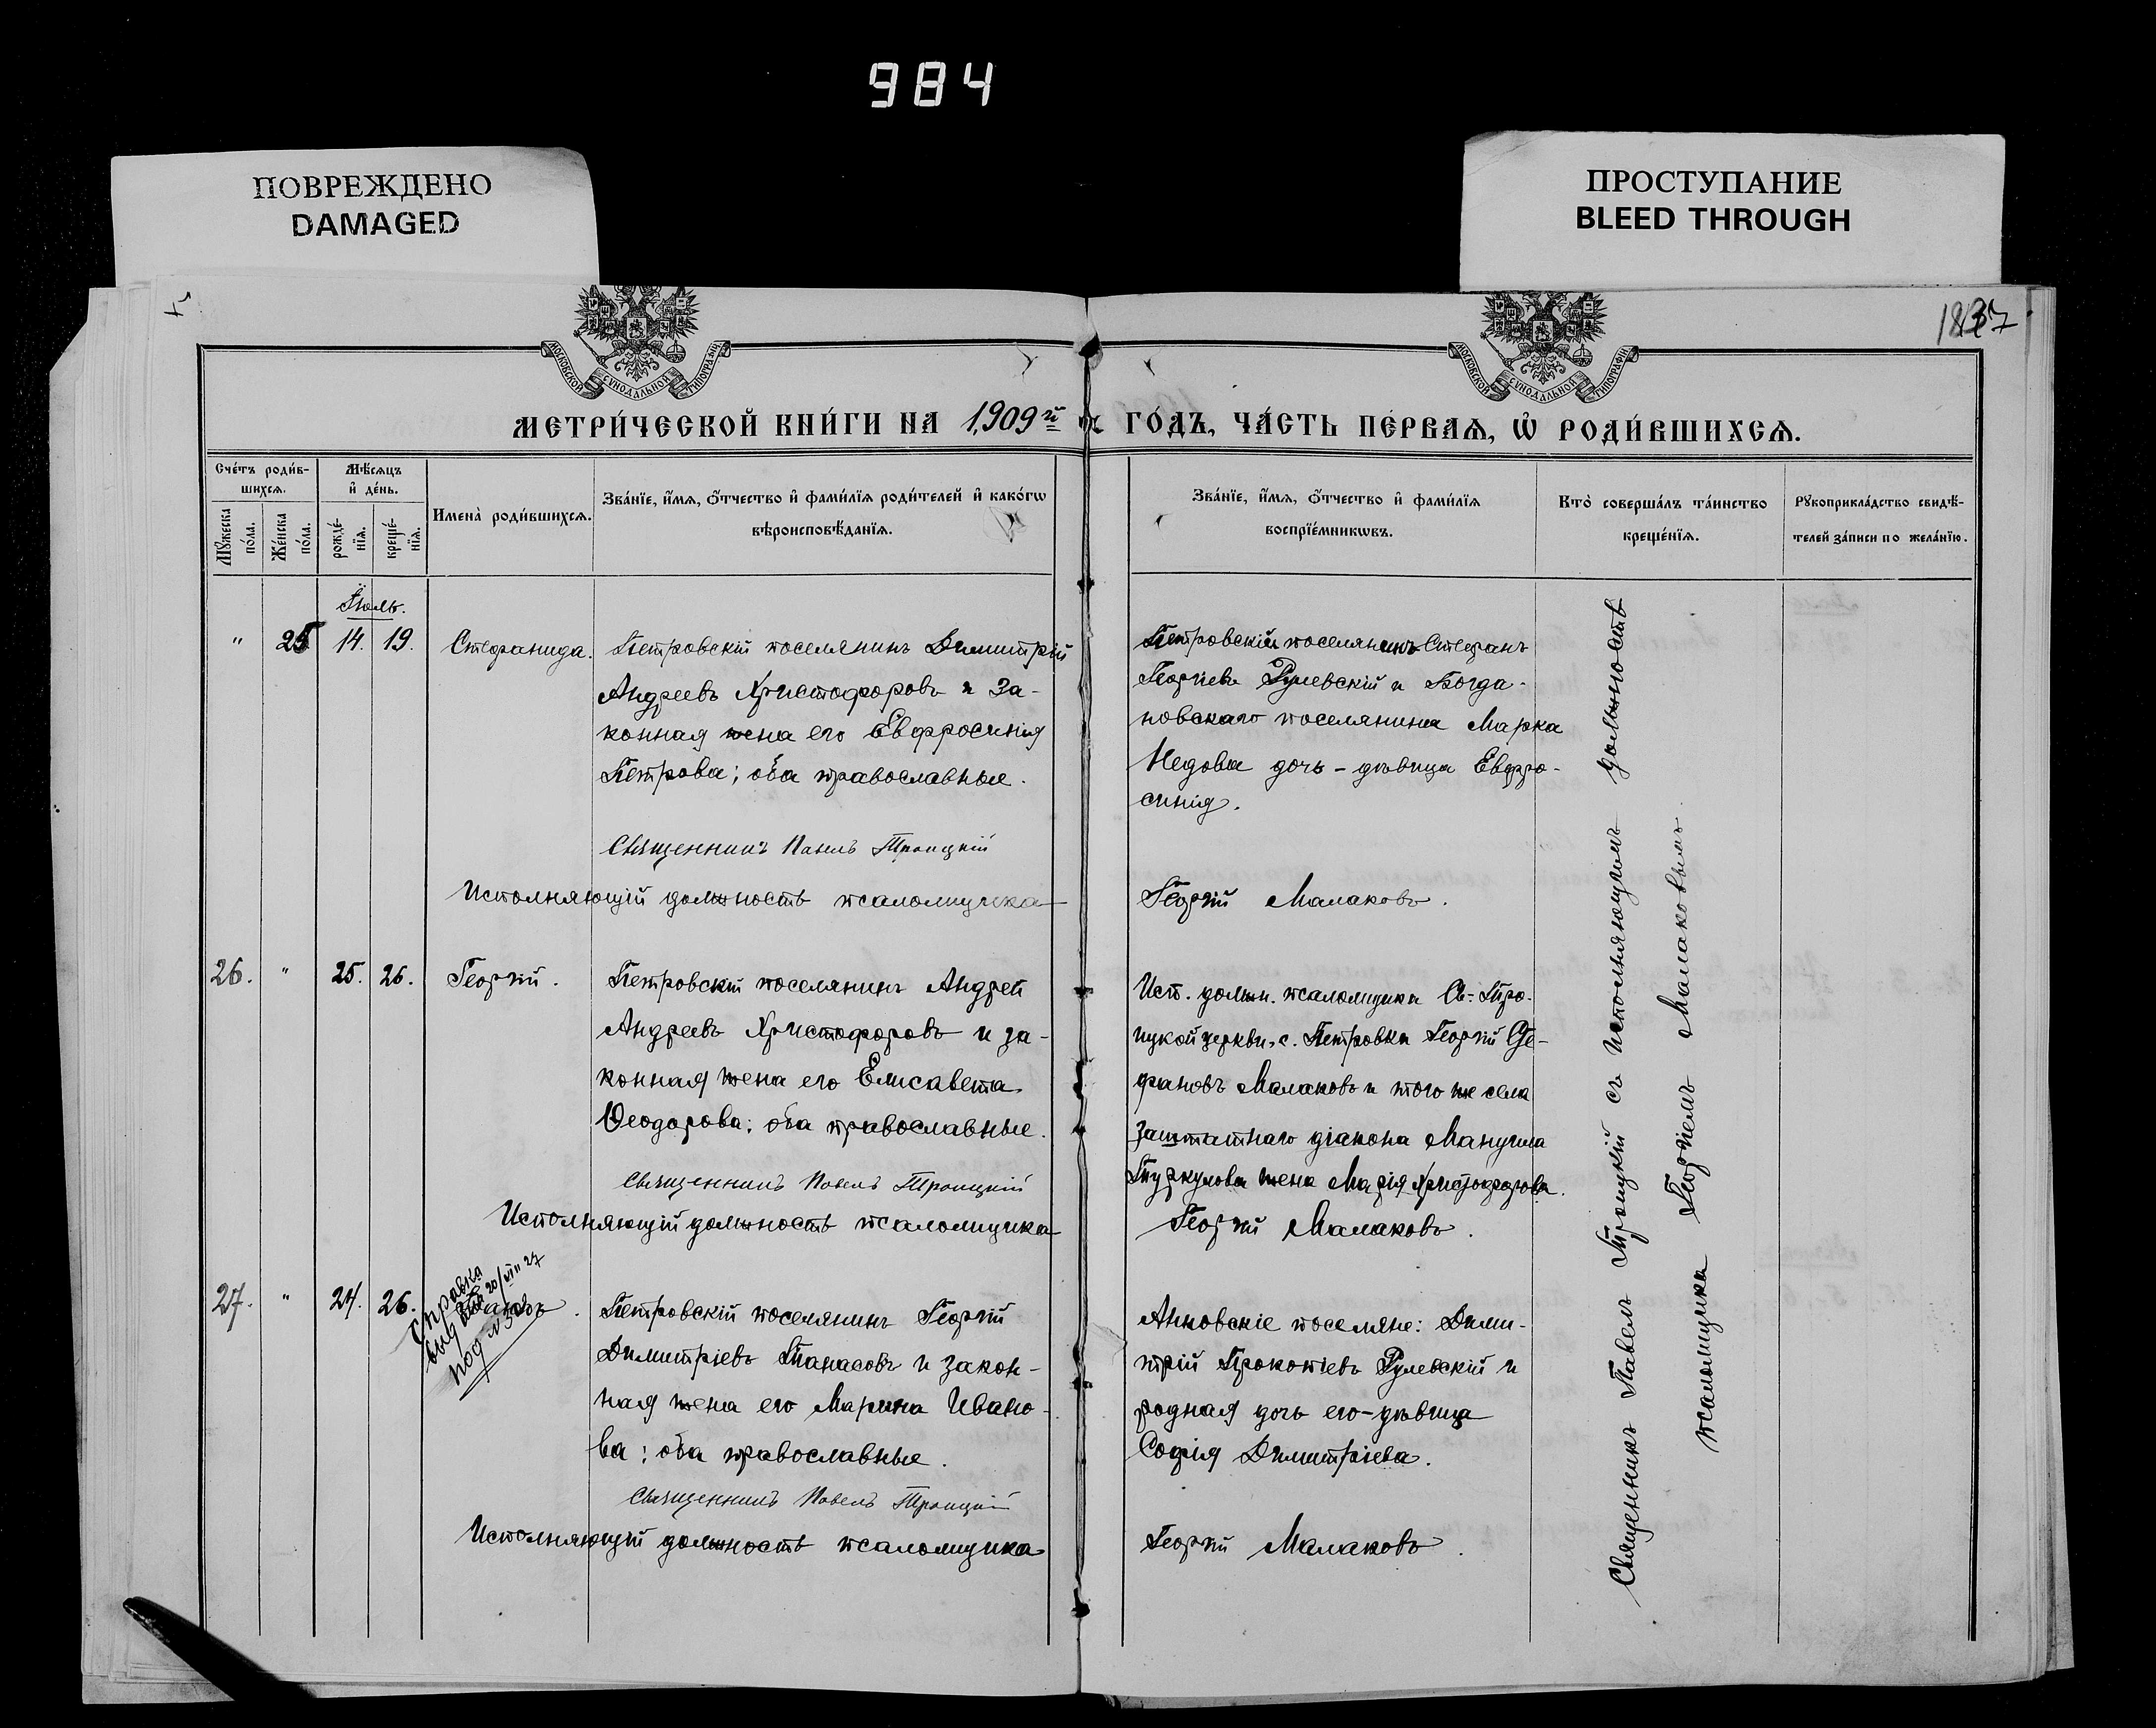 984
ПОВРЕЖДЕНО
DAMAGED
ПРОСТУПАНИЕ
BLEED THROUGH
МОСКОВСКОЙ СѴНОДАЛЬНОЙ ТИПОГРАФІИ
МОСКОВСКОЙ СѴНОДАЛЬНОЙ ТИПОГРАФІИ
МЕТРИ́ЧЕСКОЙ КНИ́ГИ НА 1909й ГО́ДЪ, ЧА́СТЬ ПЕ́РВАѦ, Ѡ҆ РОДИ́ВШИХСѦ.
Сче́тъ роди́в-
шихсѧ.
Мꙋ́жеска по́ла.
Же́нска по́ла.
Мѣ́сѧцъ
и҆ де́нь.
рожде́-
нїѧ.
креще́-
нїѧ.
Имена̀ роди́вшихсѧ.
Зва́нїе, и҆́мѧ, ѻ҆́тчество и҆ фами́лїѧ роди́телей и҆ како́гѡ
вѣроисповѣ́данїѧ.
Зва́нїе, и҆́мѧ, ѻ҆́тчество и҆ фами́лїѧ
воспрїе́мникѡвъ.
Кто̀ соверша́лъ та́инство
креще́нїѧ.
Рꙋкоприкла́дство свидѣ́-
телей за́писи по жела́нїю.
Іюль.
" 25 14. 19. Стефанида.
Петровскій поселянинъ Димитрій
Андреевъ Христофоровъ и за-
конная жена его Евфросинія
Петрова; оба православные.
Священникъ Павелъ Троицкій
Исполняющій должность псаломщика
Петровскій поселянинъ Стефанъ
Георгіевъ Рулевскій и Богда-
новскаго поселянина Марка
Недова дочь - дѣвица Евфро-
синія.
Георгій Малаковъ.
26. " 25. 26. Георгій.
Петровскій поселянинъ Андрей
Андреевъ Христофоровъ и за-
конная жена его Елисавета
Ѳеодорова; оба православные.
Священникъ Павелъ Троицкій
Исполняющій должность псаломщика
Исп. должн. псаломщика Св.-Тро-
ицкой церкви, с. Петровки Георгій Сте-
фановъ Малаковъ и того же села
заштатнаго діакона Мануила
Туркулова жена Марія Христофорова.
Георгій Малаковъ.
27. " 24. 26.
Справка
выд 20/VIII 27
под N
Петровскій поселянинъ Георгій
Димитріевъ Танасовъ и закон-
ная жена его Марина Ивано-
ва; оба православные.
Священникъ Павелъ Троицкій
Исполняющій должность псаломщика
Анновскіе поселяне: Дими-
трій Прокопіевъ Рулевскій и
родная дочь его - дѣвица
Софія Димитріева.
Георгій Малаковъ.
Священникъ Павелъ Троицкій съ исполняющимъ должность
псаломщика Георгіемъ Малаковымъ.